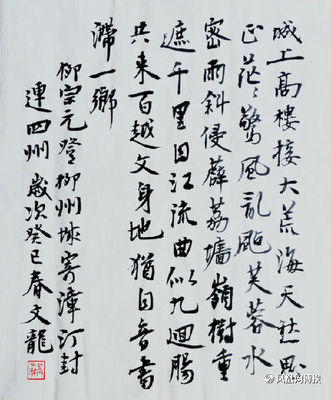 城上高樓接大荒海天愁思
正茫々驚風亂颭芙蓉水
密雨斜侵薜荔墻嶺樹重
遮千里目江流曲似九迴腸
共来百越文身地猶自音書
滯一鄉
柳宗元登柳州城寄漳汀封
連四州歲次癸巳春文龍
凤凰网博报